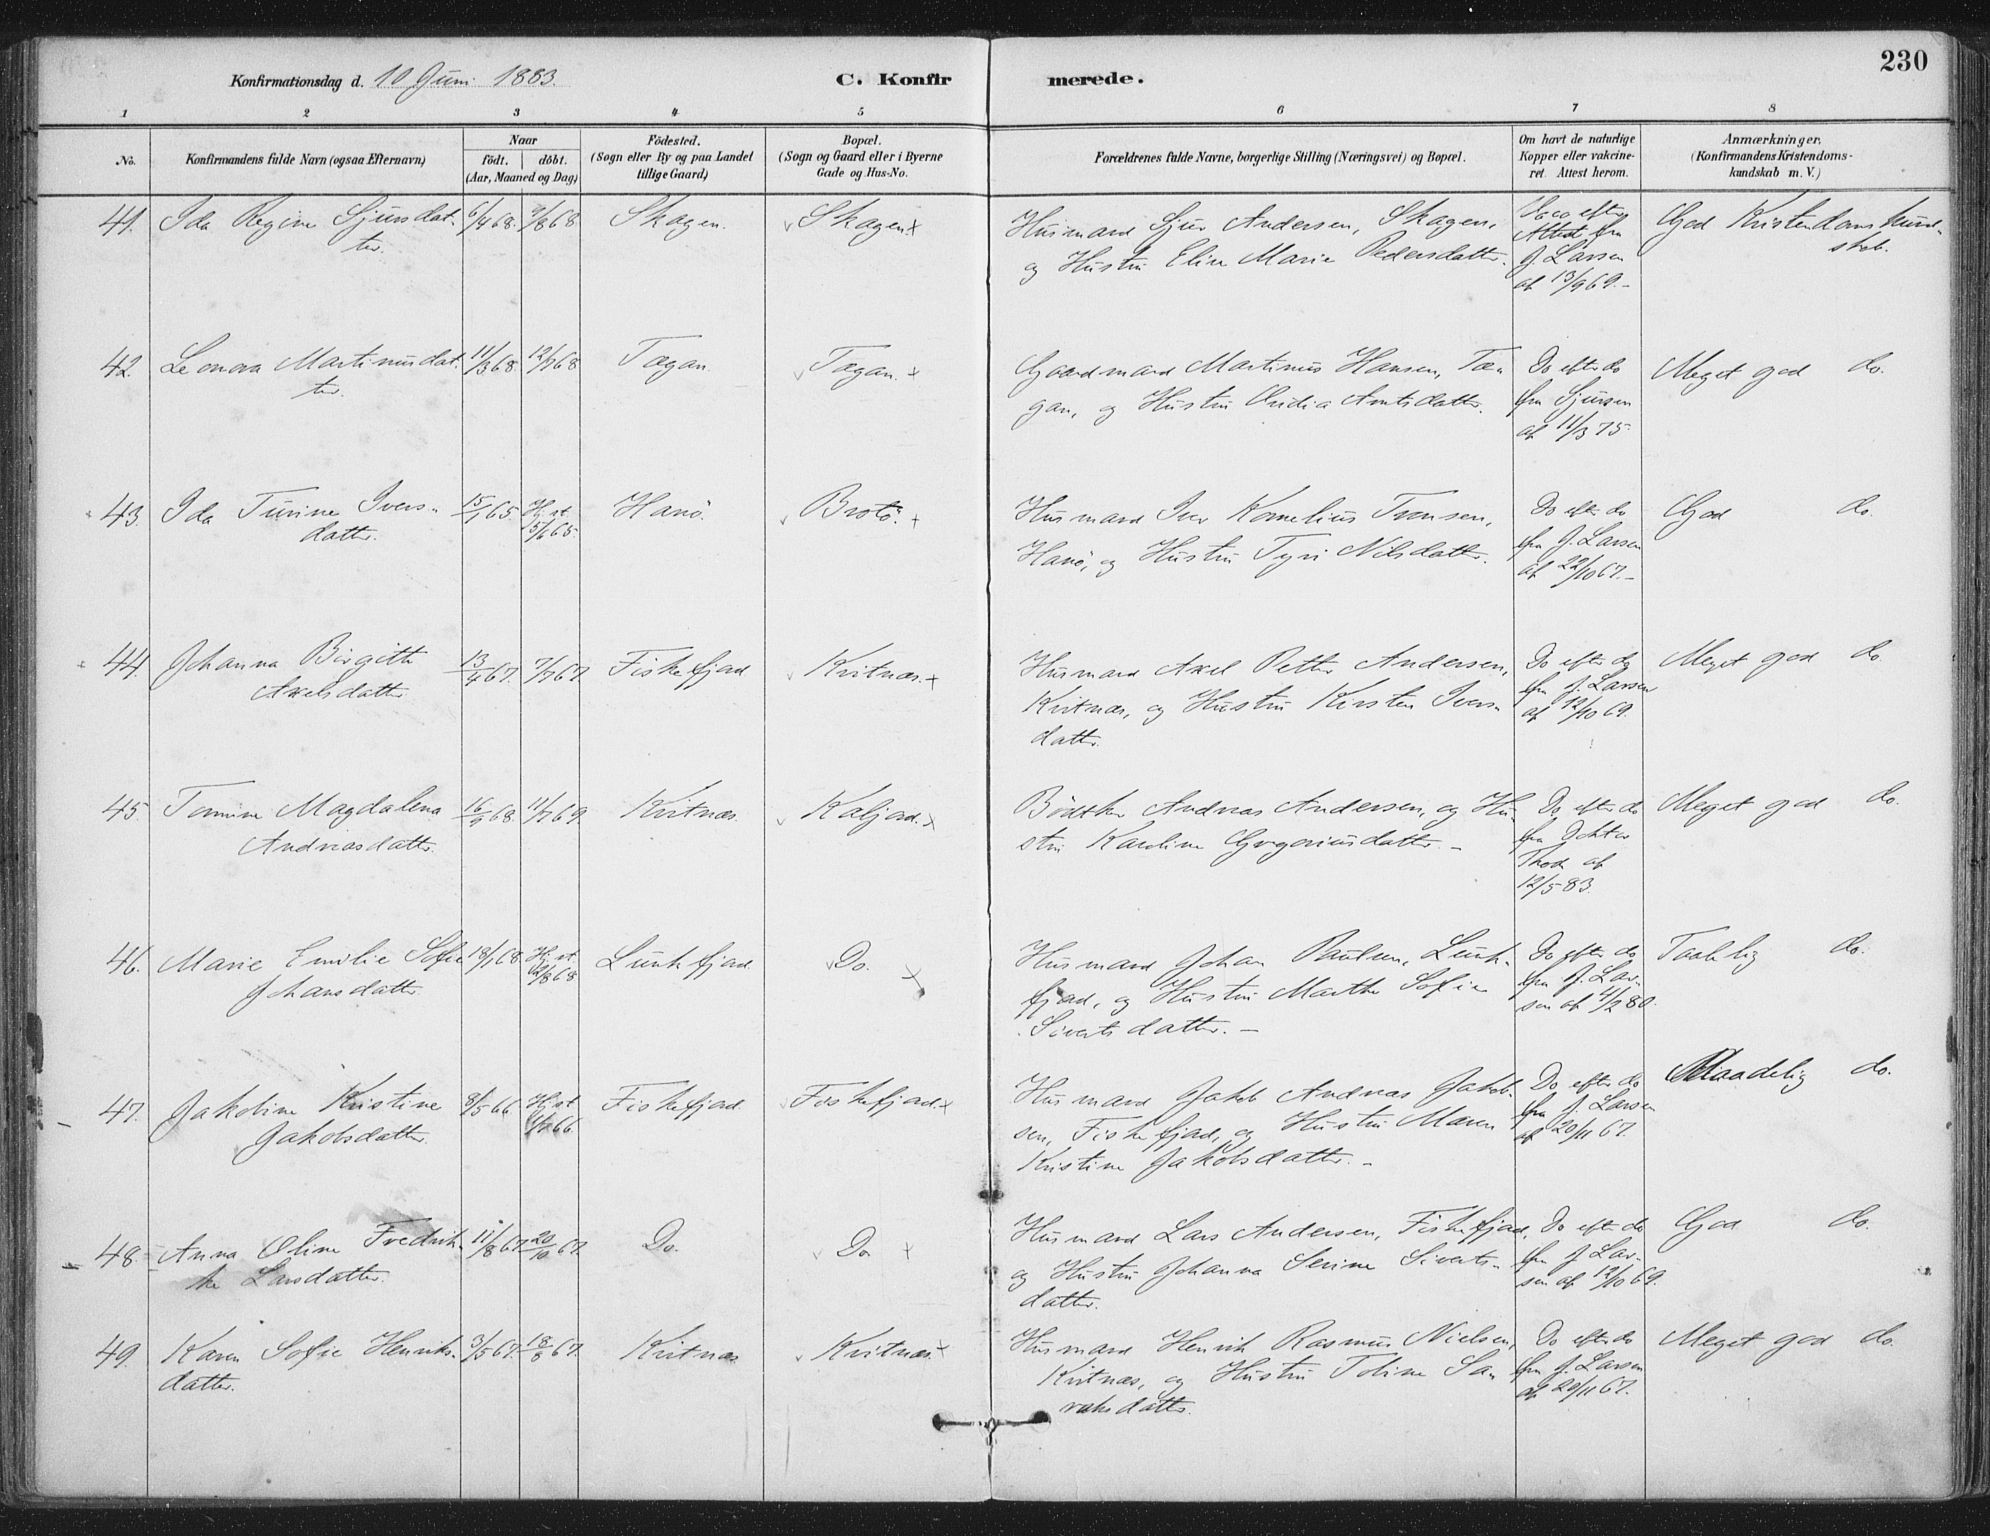 Konfirmationsdag d. 10 Juni 1883.
C. Konfir
merede.
230
1 2 3 4 5 6 7 8
No.
Konfirmandens fulde Navn (ogsaa Efternavn)
Naar
födt. döbt.
(Aar, Maaned og Dag)
Födested.
(Sogn eller By og paa Landet
tillige Gaard)
Bopæl.
(Sogn og Gaard eller i Byerne
Gade og Hus-No.
Forældrenes fulde Navne, borgerlige Stilling (Næringsvei) og Bopæl.
Om havt de naturlige
Kopper eller vakcine-
ret. Attest herom.
Anmærkninger.
(Konfirmandens Kristendoms-
kundskab m. V.)
41. Ida Regine Sjursdat- 6/4 68. 9/8 68 Skagen. Skagen. Husmand Sjur Andersen, Skagen, Vacc efter God Kristendomskund-
ter. og Hustru Eline Marie Pedersdatter. Attest fra skab.
J. Larsen
af 13/9 69.-
42. Leonora Martinusdat- 11/3 68. 12/7 68 Tægan. Tægan. Gaardmand Martinus Hansen, Tæ- Do efter do Meget god do.
ter. gan, og Hustru Andia Arntsdatter. fra Sjursen
af 11/3 75.
43. Ida Turine Ivers- 15/1 65. Hj. st. Hanö. Brotö. Husmand Iver Kornelius Tronsen, Do efter do God do.
datter. 15/1 65. Hanö, og Hustru Tyri Nilsdatter. fra J. Larsen
af 22/10 67.-
44. Johanna Birgitte 13/4 67. 7/7 67. Fiskefjord Kvitnæs. Husmand Axel Petter Andersen, Do efter do Meget god do.
Axelsdatter Kvitnæs, og Hustru Kirsten Ivers- fra J. Larsen
datter. af 12/10 69.
45 Tomine Magdalena 16/9 68. 11/7 69. Kvitnæs. Kaljord. Bödtker Andreas Andersen, og Hu- Do efter do Meget god do.
Andreasdatter. stru Karoline Gregoriusdatter. - fra Doktor
af
12/5 83.
46. Marie Emilie Sofie 18/1 68. Hj. st. Lunkfjord. Do. Husmand Johan Paulsen, Lunk- Do efter do Taalelig do.
Johansdatter. fjord, og Hustru Marthe Sofie fra J. Lar-
Sivertsdatter. - sen af 4/2 80.
47. Jakobine Kristine 8/5 66. Hj. st. Fiskefjord. Fiskefjord. Husmand Jakob Andreas Jakob- Do efter do Maadelig do.
Jakobsdatter. sen, Fiskefjord, og Hustru Maren fra J. Larsen
Kristine Jakobsdatter. - af 20/11 67.
48. Anna Oline Fredrik- 11/8 67. 20/10 67. Do. Do Husmand Lars Andersen, Fiskefjord, Do efter do God do.
ke Larsdatter. og Hustru Johanna Serine Siverts- fra J. Lar-
datter. sen af 12/10 69.
49. Karen Sofie Henriks- 3/5 67. 18/8 67. Kvitnæs Kvitnæs. Husmand Henrik Rasmus Nielsen, Do efter do Meget god do.
datter. Kvitnæs, og Hustru Toline Za- fra J. Larsen
riasdatter. af 20/11 67.